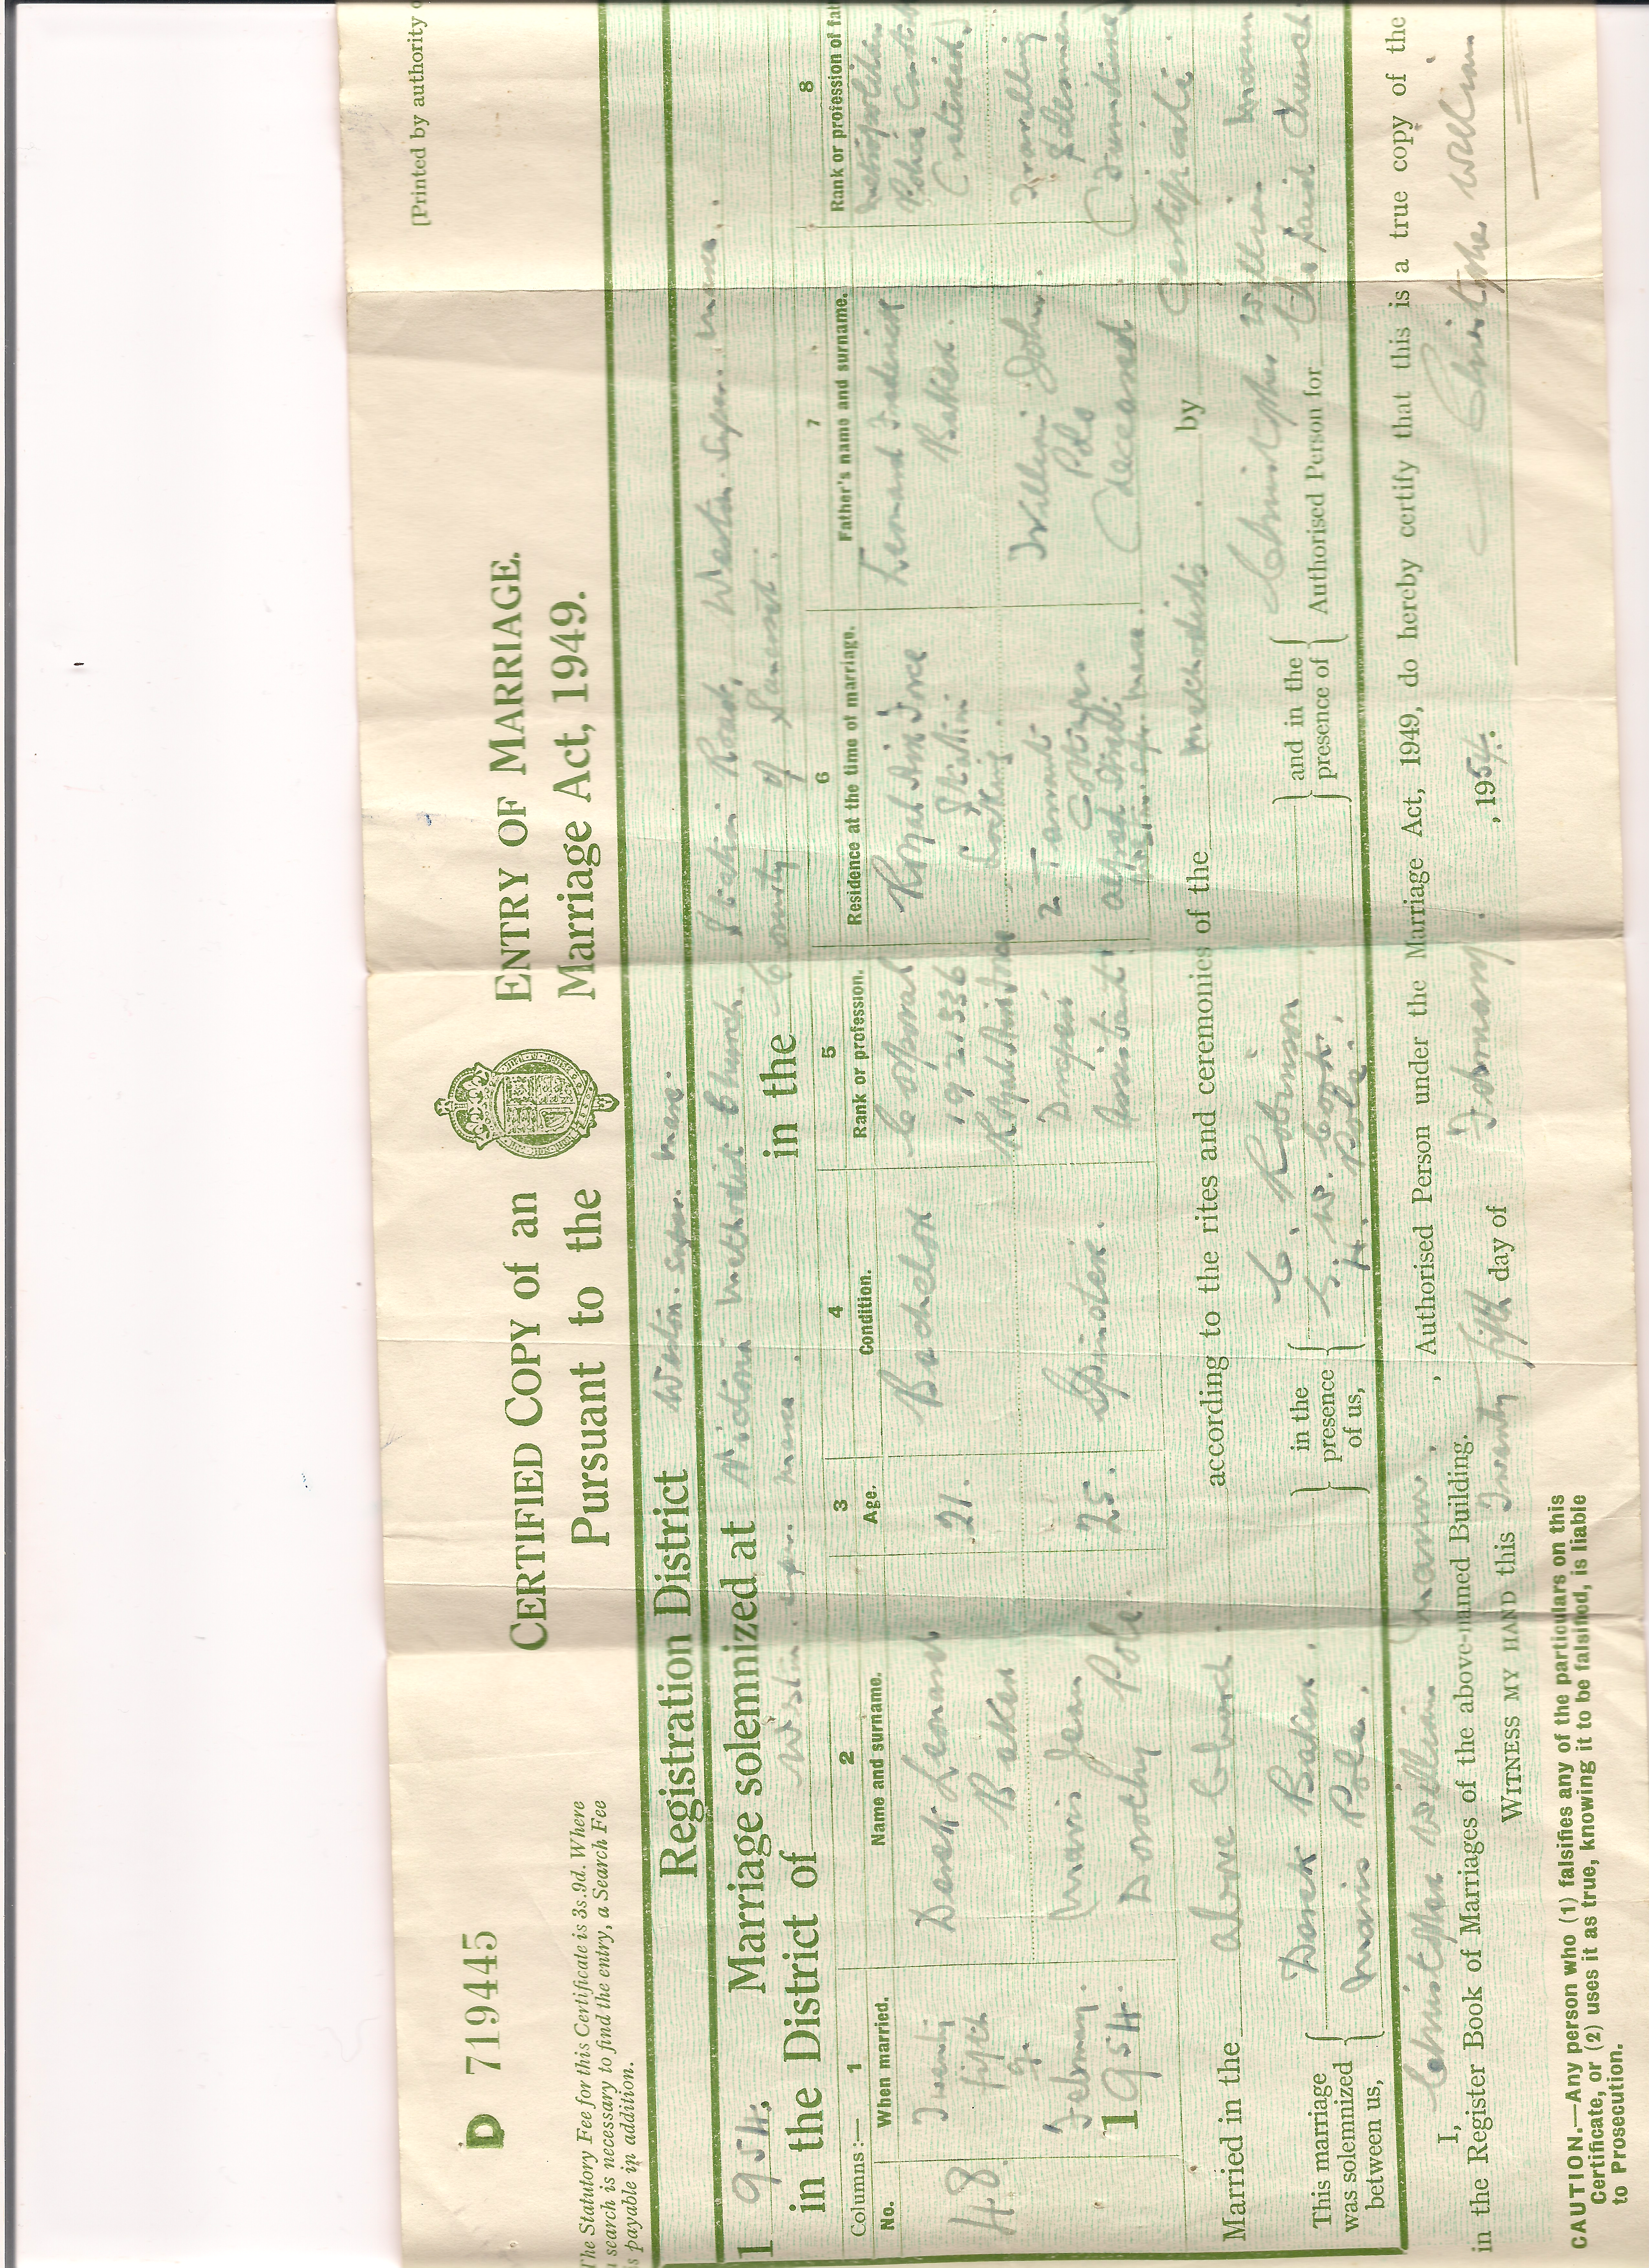 D 719445
[Printed by authority
The Statutory Fee for this Certificate is 3s.9d. Where
a search is necessary to find the entry, a Search Fee
is payable in addition.
CERTIFIED COPY of an ENTRY OF MARRIAGE.
Pursuant to the Marriage Act, 1949.
Registration District Weston-super-mare.
1954. Marriage solemnized at Victoria Methodist Church Station Road, Weston-Super-Mare.
in the District of Weston-super-mare. in the County of Somerset.
Columns:— 1 2 3 4 5 6 7 8
No. When married. Name and surname. Age. Condition. Rank or profession. Residence at the time of marriage. Father's name and surname. Rank or profession of fat
48. Twenty fifth February. 1954.
Derek Leonard Baker
21.
Bachelor
Corporal
Royal Air Force
Royal Air Force
Station
Leonard Frederick
Baker.
Metropolitan
Police
Mavis Jean
Dorothy Pole.
25.
Spinster.
Assistant
2
Cottages
Alfred Street
William John
Pole
(deceased
Travelling
Salesman
Married in the above Church according to the rites and ceremonies of the Methodists. by Certificate.
This marriage
was solemnized
between us,
Derek Baker.
Mavis Pole.
in the
presence
of us,
C. Robinson
S. W. Cook.
H. Pole.
and in the
presence of
Christopher William
Authorised Person for the said Church
I, Christopher William , Authorised Person under the Marriage Act, 1949, do hereby certify that this is a true copy of the
in the Register Book of Marriages of the above-named Building.
WITNESS MY HAND this Twenty fifth day of February. , 1954. Christopher William
CAUTION.—Any person who (1) falsifies any of the particulars on this
Certificate, or (2) uses it as true, knowing it to be falsified, is liable
to Prosecution.